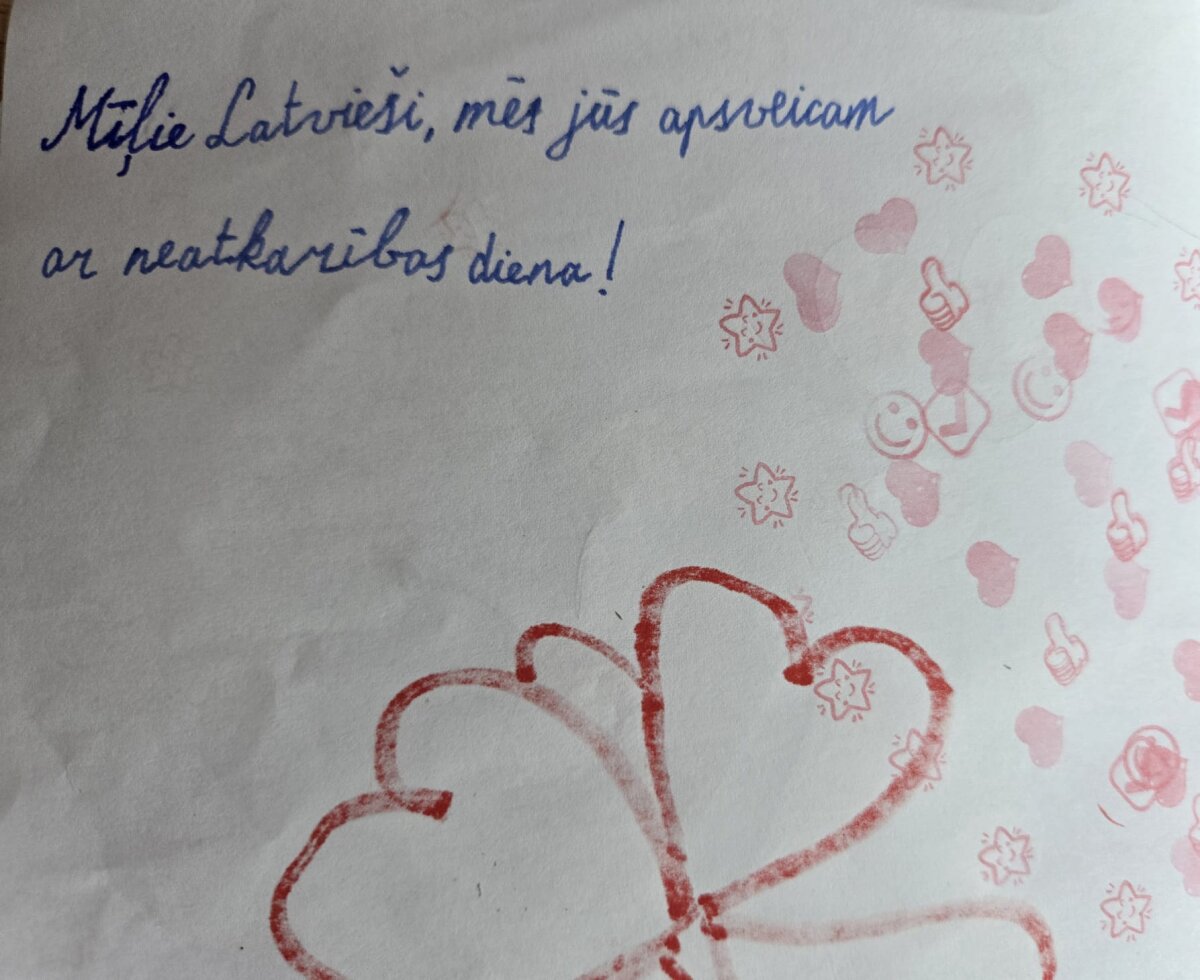 Mīļie Latvieši, mēs jūs apsveicam
ar neatkarības diena!